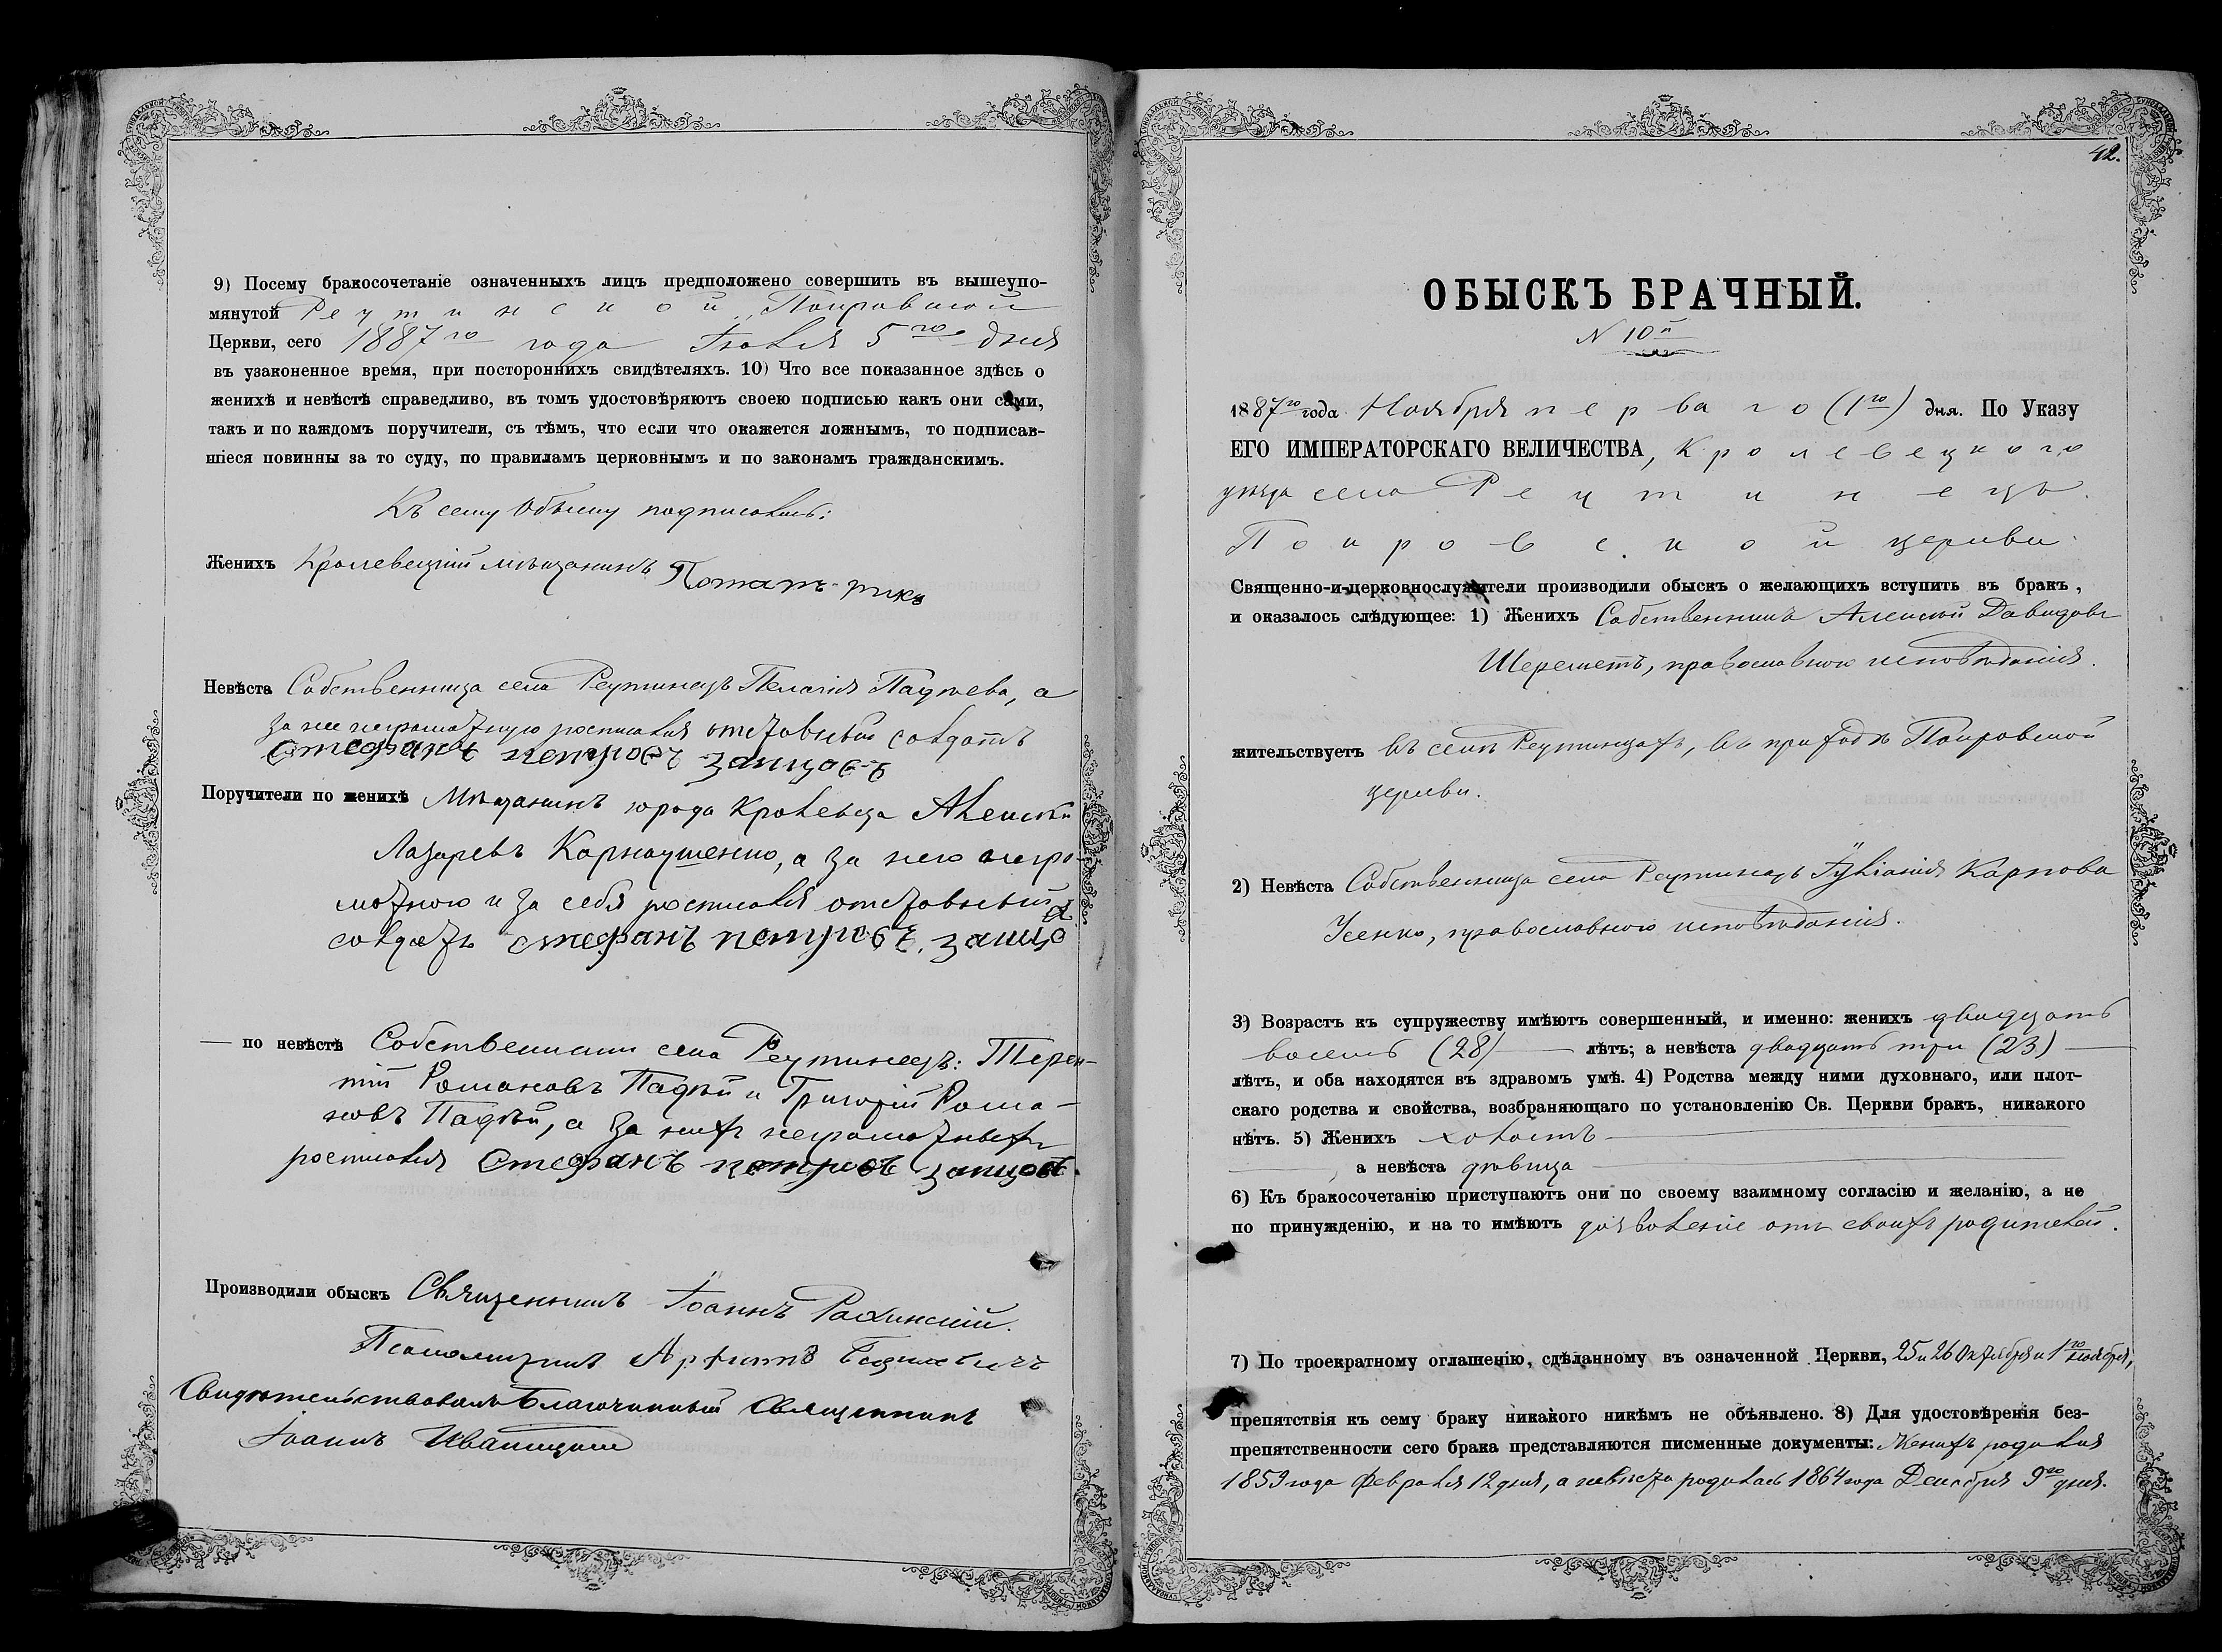 9) Посему бракосочетаніе означенныхъ лицъ предположено совершить въ вышеупо-
мянутой Реутинской Покровской
Церкви, сего 1887го года Іюля 5го дня
въ узаконенное время, при постороннихъ свидѣтеляхъ. 10) Что все показанное здѣсь о
женихѣ и невѣстѣ справедливо, въ томъ удостовѣряютъ своею подписью какъ они сами,
такъ и по каждомъ поручители, съ тѣмъ, что если что окажется ложнымъ, то подписав-
шіеся повинны за то суду, по правиламъ церковнымъ и по законамъ гражданскимъ.
Къ сему обыску подписались:
Женихъ Кролевецкій мѣщанинъ
Невѣста Собственница села Реутинецъ Пелагія, а
за нее неграмотную росписался отставный солдатъ
стефанъ петровъ запцовъ
Поручители по женихѣ Мѣщанинъ города Кролевца Алексѣй
Лазаревъ Карнаушенко, а за него негра-
мотного и за себя росписался отставный
солдатъ стефанъ петровъ запцо
— по невѣстѣ Собственники села Реутинецъ: Терен-
тій Романовъ Падѣй и Григорій Рома-
новъ Падѣй, а за нихъ неграмотныхъ
росписался Стефанъ петровъ запцовъ
Производили обыскъ Священникъ Іоаннъ
Псаломщикъ
Свидѣтельствовалъ Благочинный Священникъ
Іоаннъ Иваницкій
42.
ОБЫСКЪ БРАЧНЫЙ.
N 10й
1887го года Ноября перваго (1го) дня. По Указу
ЕГО ИМПЕРАТОРСКАГО ВЕЛИЧЕСТВА, Кролевецкого
уѣзда села Реутинецъ
Покровской церкви
Священно-и-церковнослужители производили обыскъ о желающихъ вступить въ бракъ,
и оказалось слѣдующее: 1) Женихъ Собственникъ Алексѣй Давидовъ
Шереметъ, православного исповѣданія.
жительствуетъ въ селѣ Реутинцахъ, въ приходѣ Покровской
церкви.
2) Невѣста Собственница села Реутинецъ Іуліанія Карпова
Усенко, православного исповѣданія.
3) Возрастъ къ супружеству имѣютъ совершенный, и именно: женихъ двадцать
восемь (28) лѣтъ; а невѣста двадцать три (23)
лѣтъ, и оба находятся въ здравомъ умѣ. 4) Родства между ними духовнаго, или плот-
скаго родства и свойства, возбраняющаго по установленію Св. Церкви бракъ, никакого
нѣтъ. 5) Женихъ холостъ
а невѣста дѣвица
6) Къ бракосочетанію приступаютъ они по своему взаимному согласію и желанію, а не
по принужденію, и на то имѣютъ дозволеніе отъ своихъ родителей.
7) По троекратному оглашенію, сдѣланному въ означенной Церкви, 25 и 26 Октября и 1го Ноября,
препятствія къ сему браку никакого никѣмъ не объявлено. 8) Для удостовѣренія без-
препятственности сего брака представляются писменные документы: Женихъ родился
1859 года Февраля 12 дня, а невѣста родилась 1864 года Декабря 9го дня.